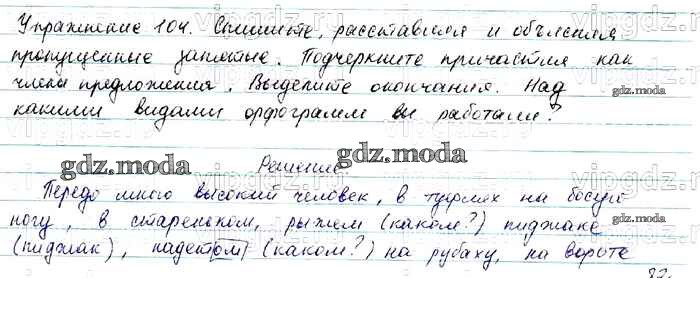 Упражнение 104. Спишите, расставляя и объясняя
пропущенные запятые. Подчеркните причастия как
члены предложения. Выделите окончания. Над
какими видами орфограмм вы работали?
gdz.moda
gdz.moda
Решение.
gdz.moda
Передо мною высокий человек, в туфлях на босую
ногу, в стареньком, рыжем (каком?) пиджаке
gdz.moda
(пиджак), надетом (каком?) на рубаху, на вороте
gdz.moda